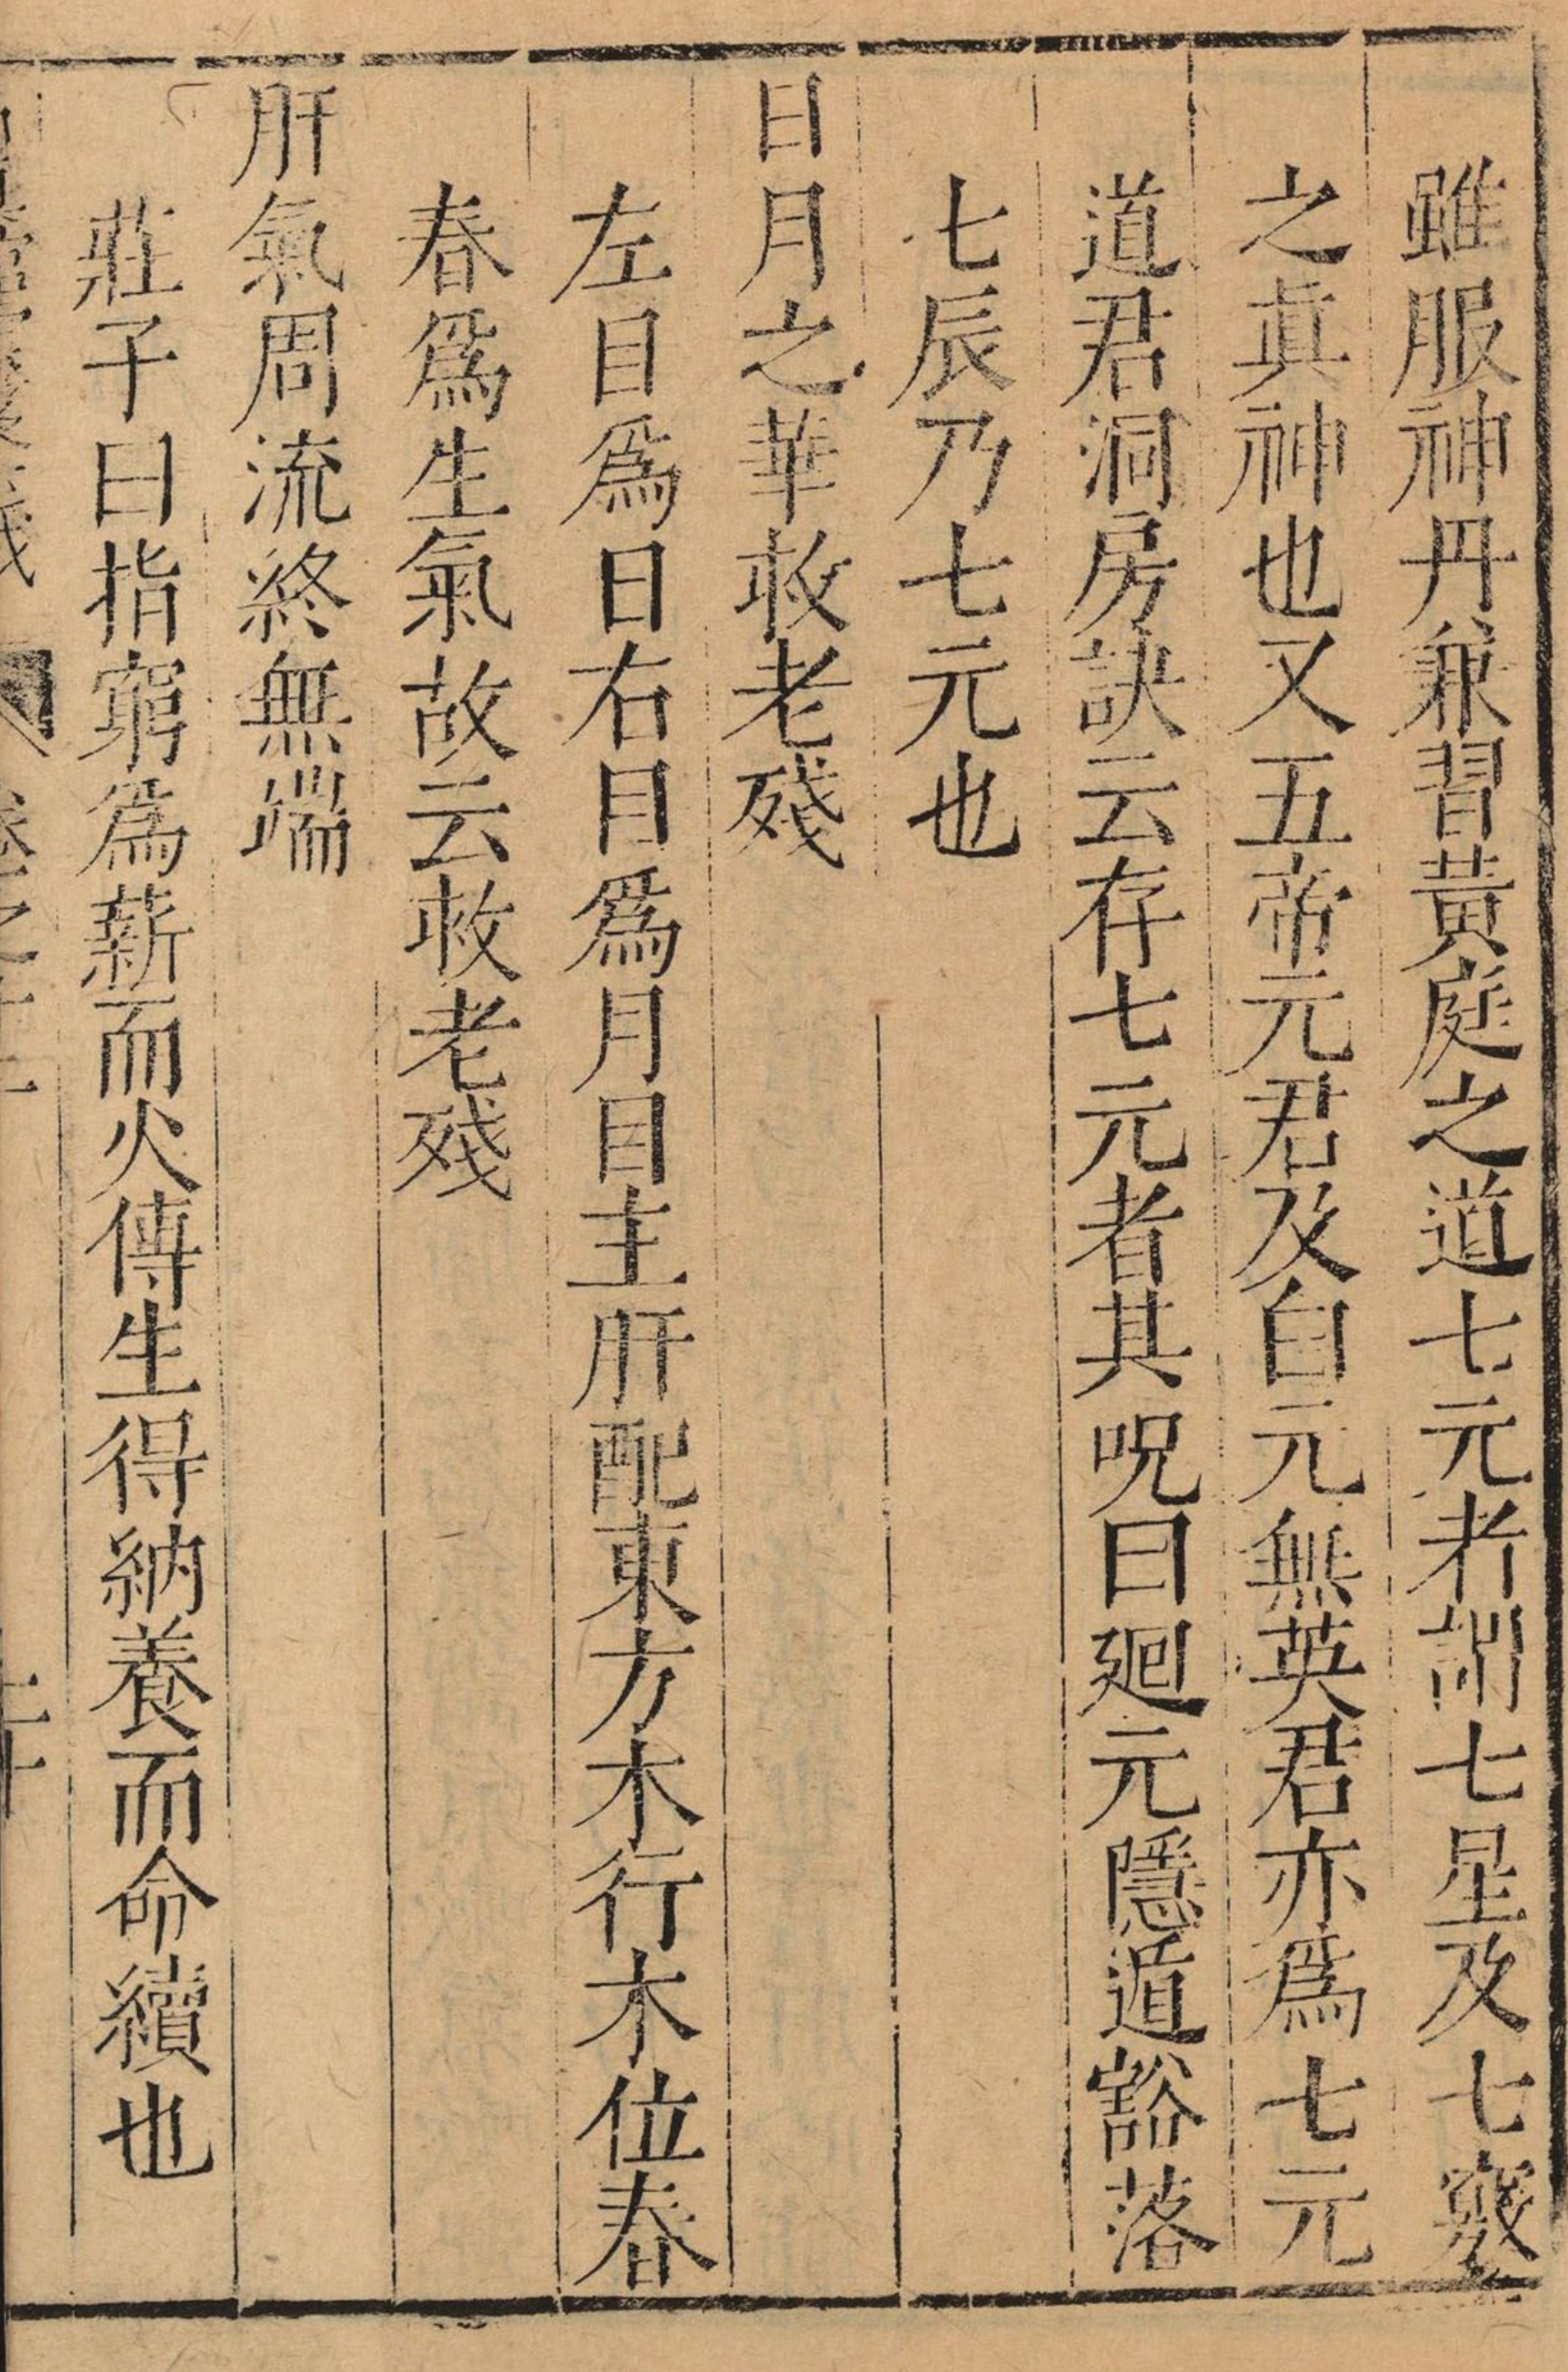 雖服神丹兼習黃庭之道七元者謂七星及七竅
之眞神也又五帝元君及白元無英君亦爲七元
道君洞房訣云存七元者其呪曰廻元隱遁豁落
七辰乃七元也
日月之華救老殘
左目爲日右目爲月目主肝配東方木行木位春
春爲生氣故云救老殘
肝氣周流終無端
莊子曰指窮爲薪而火傳生得納養而命續也